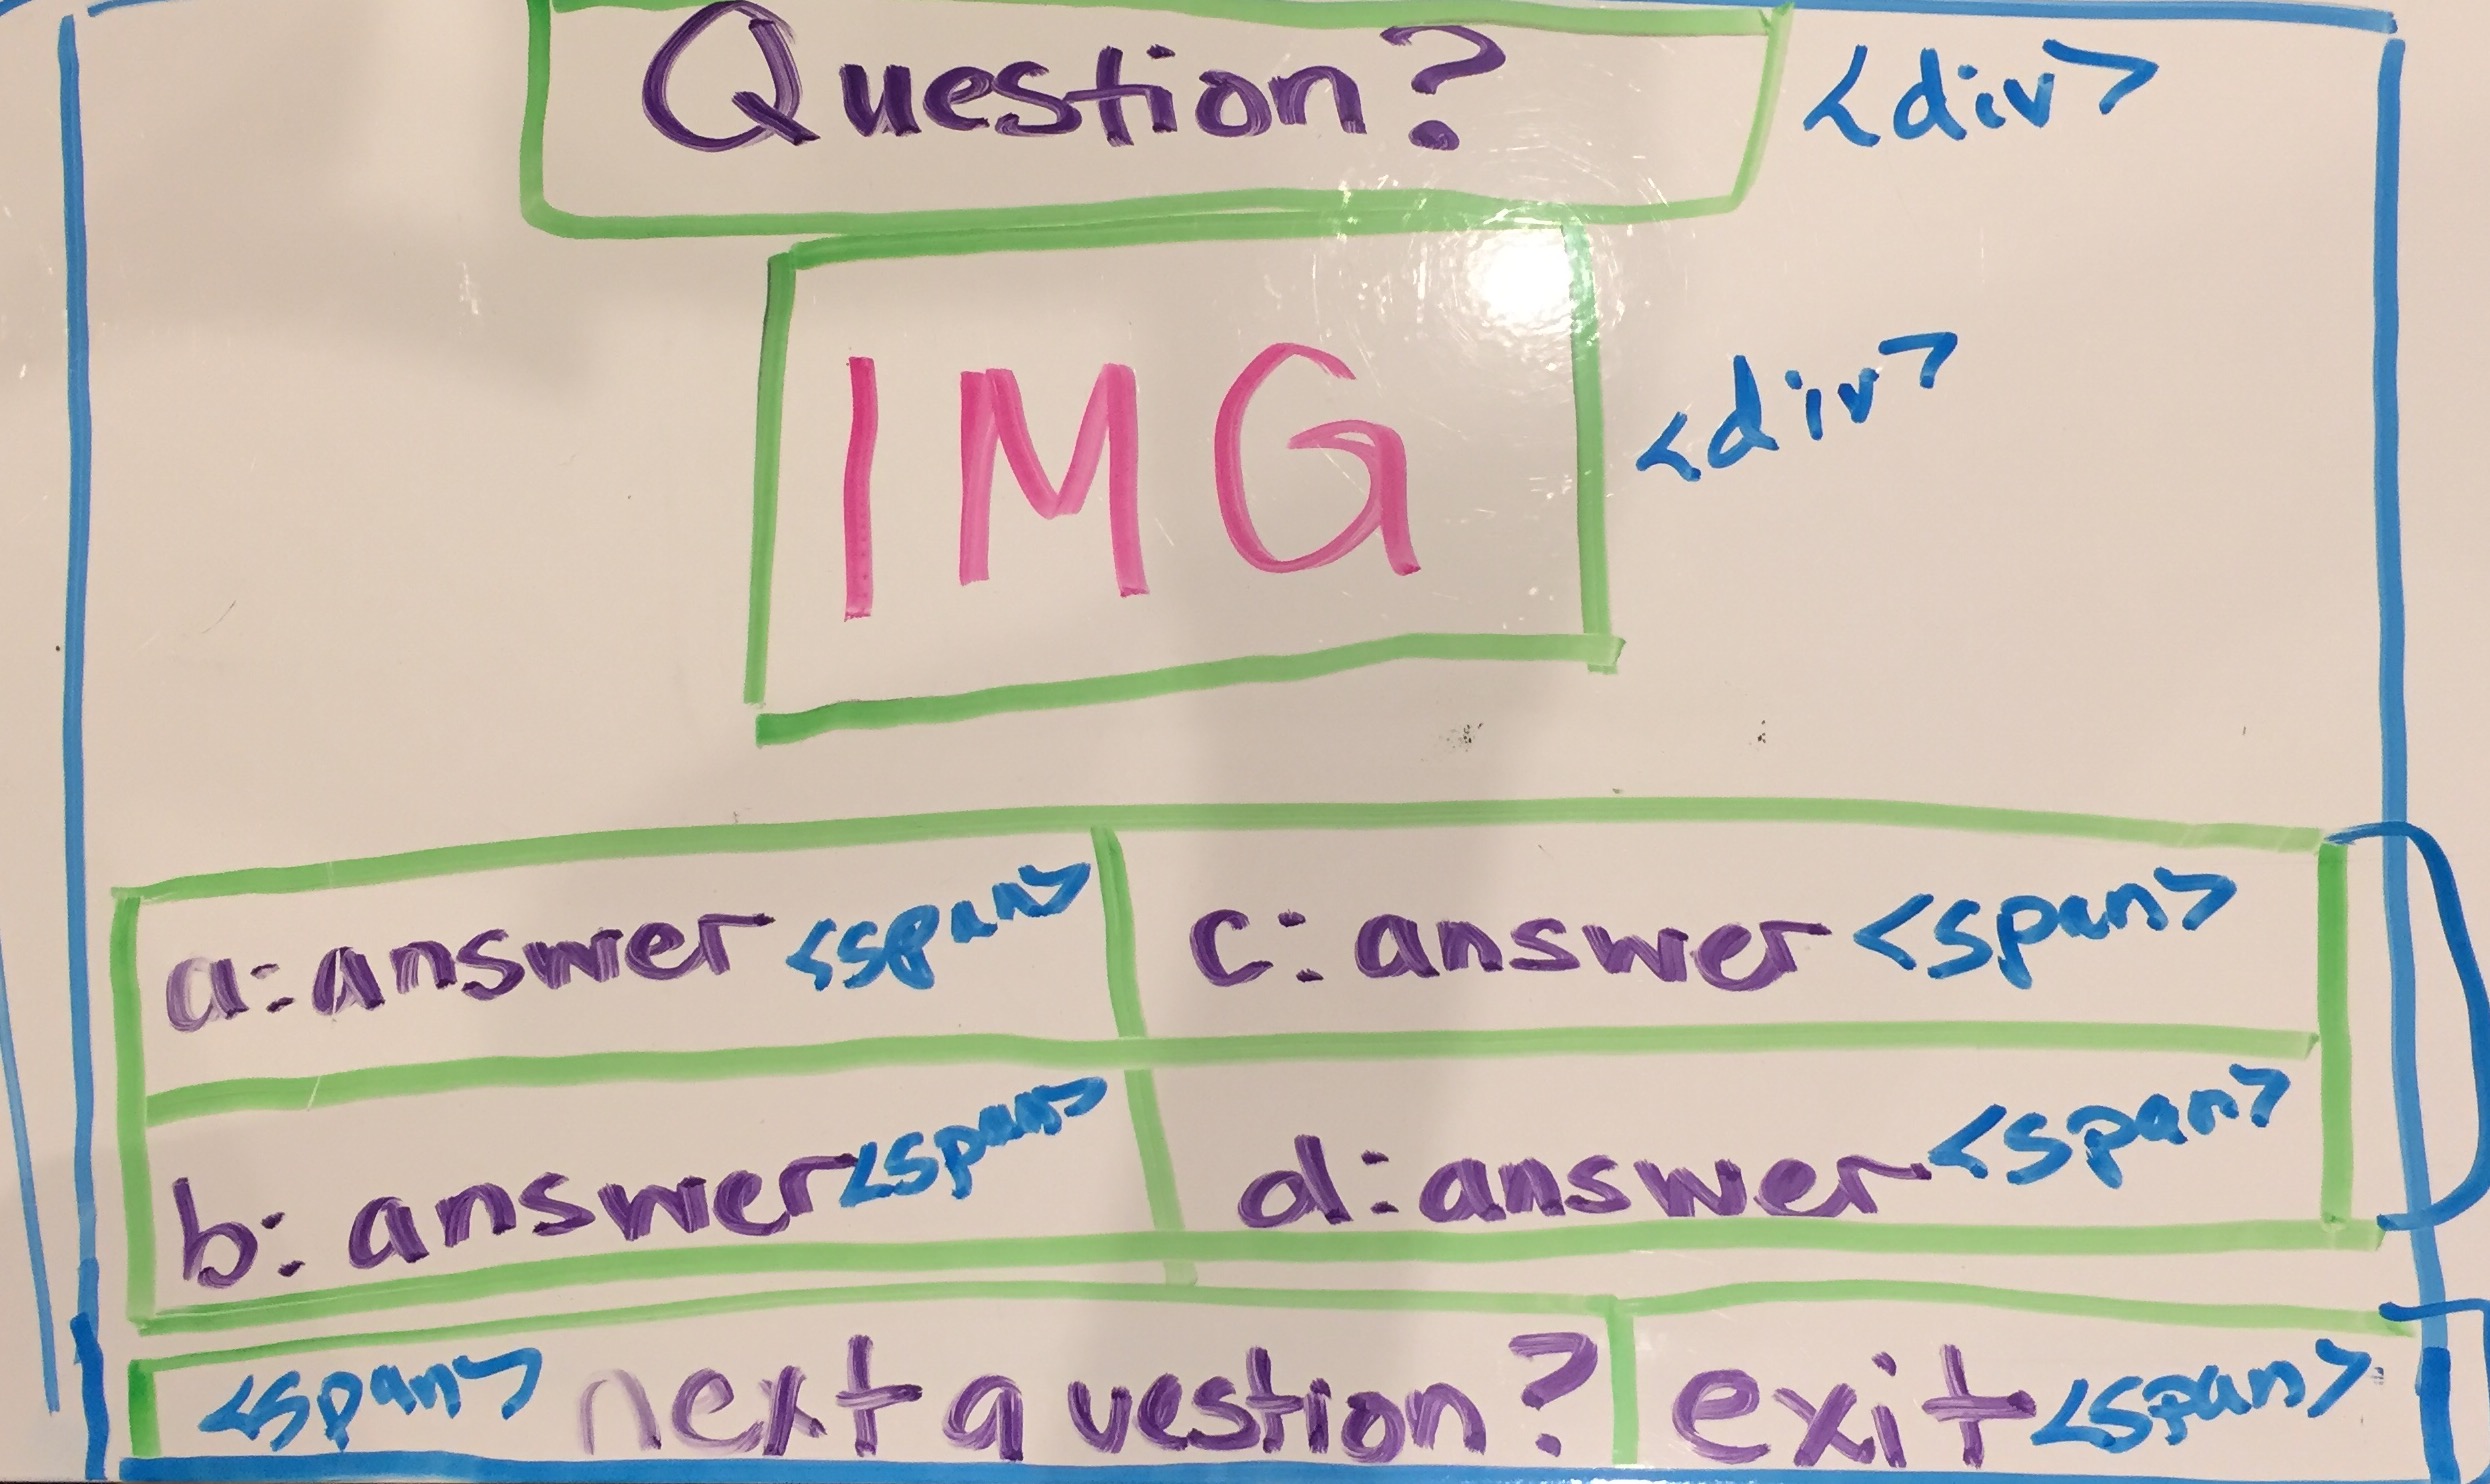 Question? <div>
IMG <div>
a: answer <span> c: answer <span>
b: answer <span> d: answer <span>
<span> next question? exit <span>